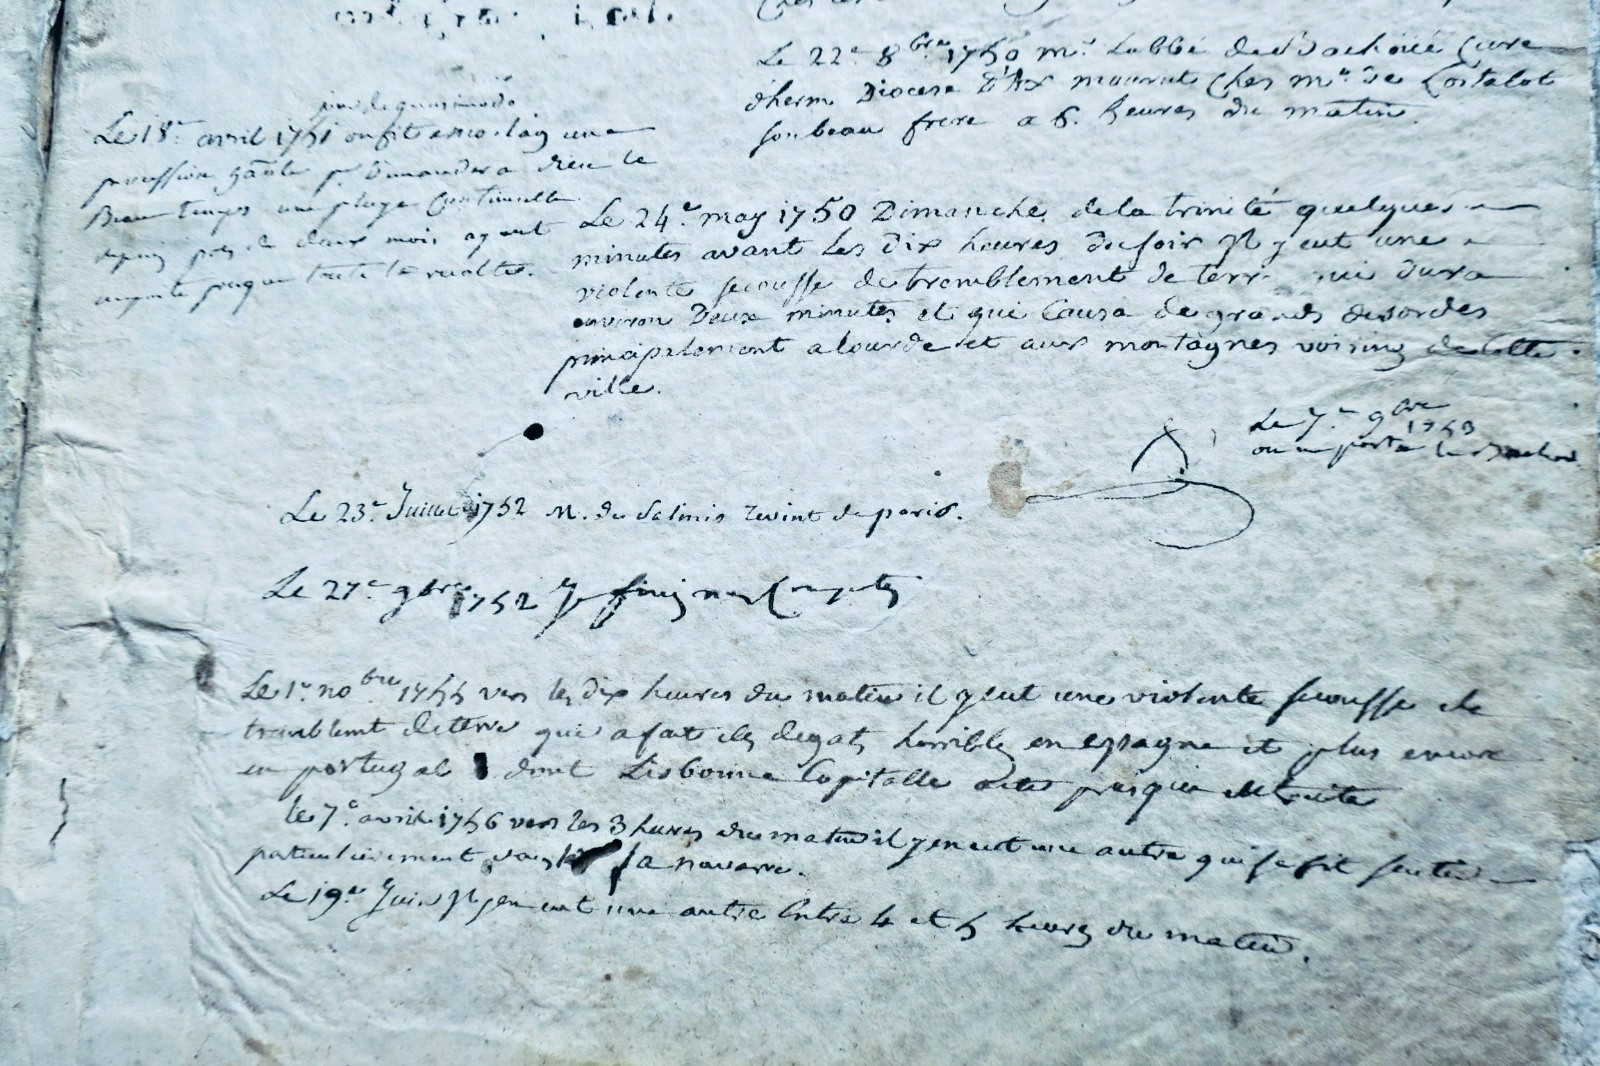 Le 22.e 8bre 1750 mr. Labbé de Vachoüé Cure
dherm Diocese D'Ax mourut Ches mr. de Lostalot
son beau frere a 6. heures du matin.
jour de quasimodo
Le 18.e avril 1751 on fit une
procession gãlle pr. Demander a dieu le
Beau temps une pluye Continuelle
depuis pres de deux mois ayant
emporté presque toute la recolte.
Le 24.e may 1750 Dimanche de la trinité quelques
minutes avant les dix heures du soir Il y eut une
violente secousse de tremblement de terre qui dura
environ Deux minutes et qui Causa de grands desordes
principalement a lourde et aux montagnes voisines de cette
ville.
Le 7.e 9bre
1753
on
Le 23.e Juillet 1752 M. de Salinis revint de paris.
Le 27.e 9bre 1752 Je finis mes
Le 1.r nobre 1755 vers les dix heures du matin il y eut une violente secousse de
tremblemt de terre qui a fait des degats horribles en espagne et plus encore
en portugal dont Lisbonne Capitalle a été presque détruite
le 7.e avril 1756 vers les 3 heures du matin il y en eut une autre qui se fit sentir
particulierement dans la navarre.
Le 19.e Juin Il y en eut une autre Entre 4 et 5 heures du matin.